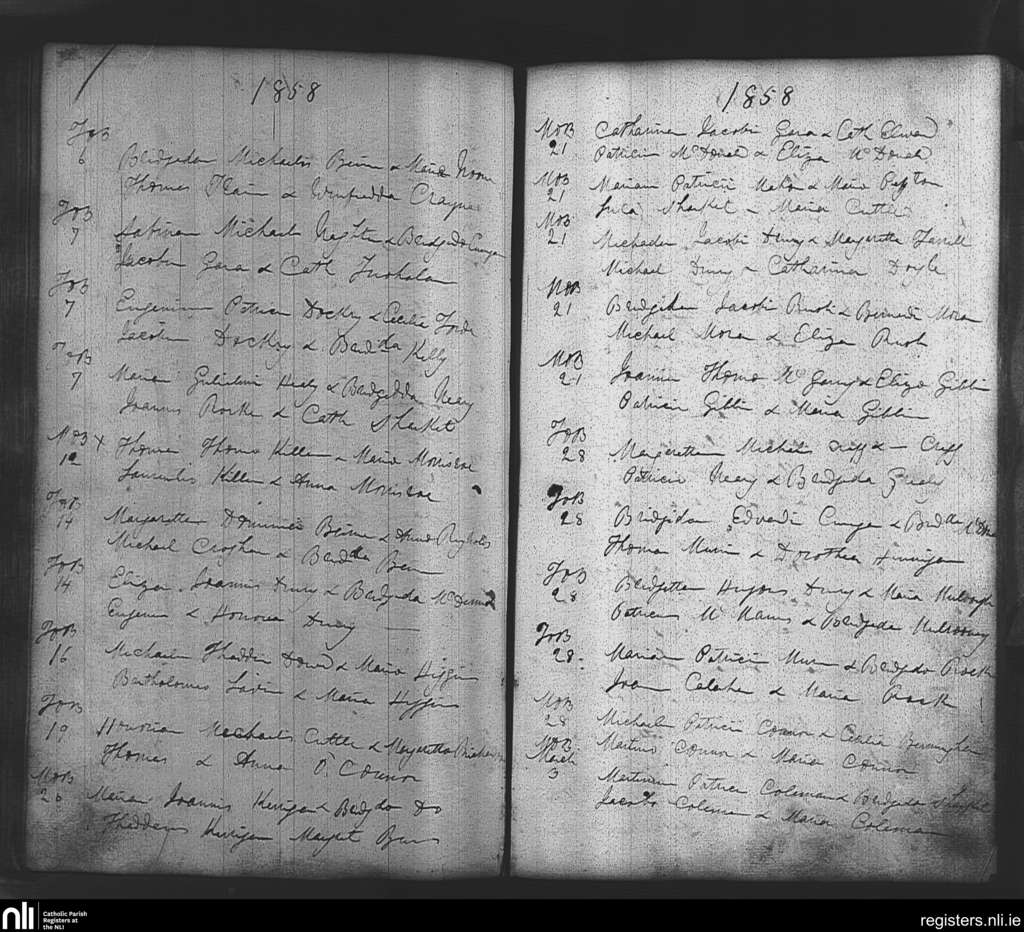 1858
JOB
6
Bridgidam Michaelis Beirn & Maria Noon
Thomas Flain & Winifridda Crayne
JOB
7
Sabinam Michael Naghten & Bridgida
Jacobus Gara & Cath
JOB
7
Eugenium Patricii Dockry & Cecilia Forde
Jacobus Dockry & Brid tta Kelly
JOB
7
Mariam Gulielmi Healy & Bridgidda Neary
Joannis Rorke & Cath Sharket
MOB x
12
Thomam Thoma Killen & Maria Morrisroe
Laurentis Killen & Anna Morrisroe
JOB
14
Margarettam Dominici Beirne & Anna Reynolds
Michael Croghan & Brid tta Beirn
JOB
14
Elizam Joannis Drury & Bridgida McDermot
Eugenius & Honorea Drury
JOB
16
Michaelem Thaddei Dowd & Maria Higgins
Bartholomeus & Maria Higgins
JOB
19
Honoriam Michaelis Cuttle & Margaretta
Thomas & Anna O'Connor
MOB
20
Mariam Joannis Kerrigan & Bridgda Do
Thaddeus Kerrigan Margret Burns
1858
MOB
21
Catharinam Jacobi Gara & Cath Elwood
Patricius McDonald & Eliza McDonald
MOB
21
Mariam Patricii Mahon & Maria Peyton
Luca Sharket & Maria Cuttle
MOB
21
Michaelem Jacobi Drury & Margaretta Farrell
Michael Drury & Catharina Doyle
MOB
21
Bridgidam Jacobi Rush & Moran
Michael Moran & Eliza Rush
MOB
21
Joannem Thoma McGarry & Eliza Giblin
Patricius Giblin & Maria Giblin
JOB
28
Margarettam Michael Cuff & — Cuff
Patricius Neary & Bridgida Grealy
JOB
28
Bridgidam Edvardi & Brid tta
Thoma & Dorothea Finnigan
JOB
28
Bridgettam Drury & Maria
Patricius McManus & Bridgida Mulrooney
JOB
28
Mariam Patricii & Bridgida Rock
Joan Calaher & Maria Rock
MOB
28
Michael Patricii Connor & Cecilia Bermingham
Martinus Connor & Maria Connor
MOB
March
3
Martinum Patricii Coleman & Bridgida
Jacobus Coleman & Maria Coleman
nli
Catholic Parish
Registers at
the NLI
registers.nli.ie